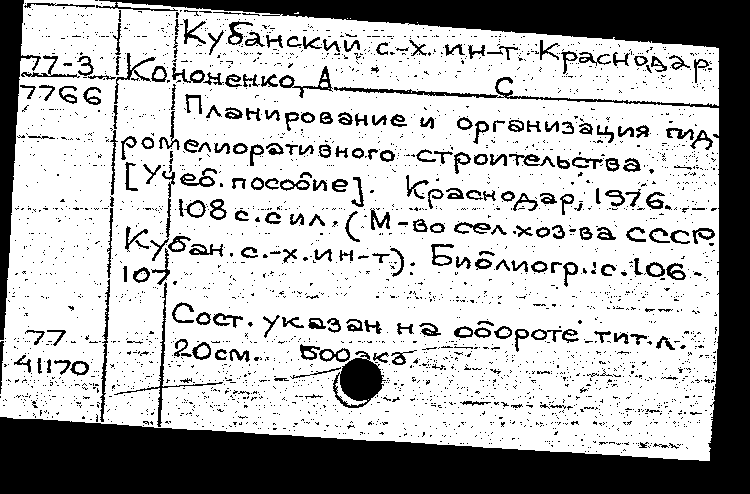 Кубанский с.-х. ин-т. Краснодар.
77-3 Кононенко, А С
7766
Планирование и организация гид-
ромелиоративного строительства.
[Учеб. пособие]. Краснодар, 1976.
108 с. с ил. (М-во сел. хоз-ва СССР.
Кубан. с.-х. ин-т). Библиогр.: с. 106-
107.
Сост. указан на обороте тит. л.
77 20см. 500экз.
41170